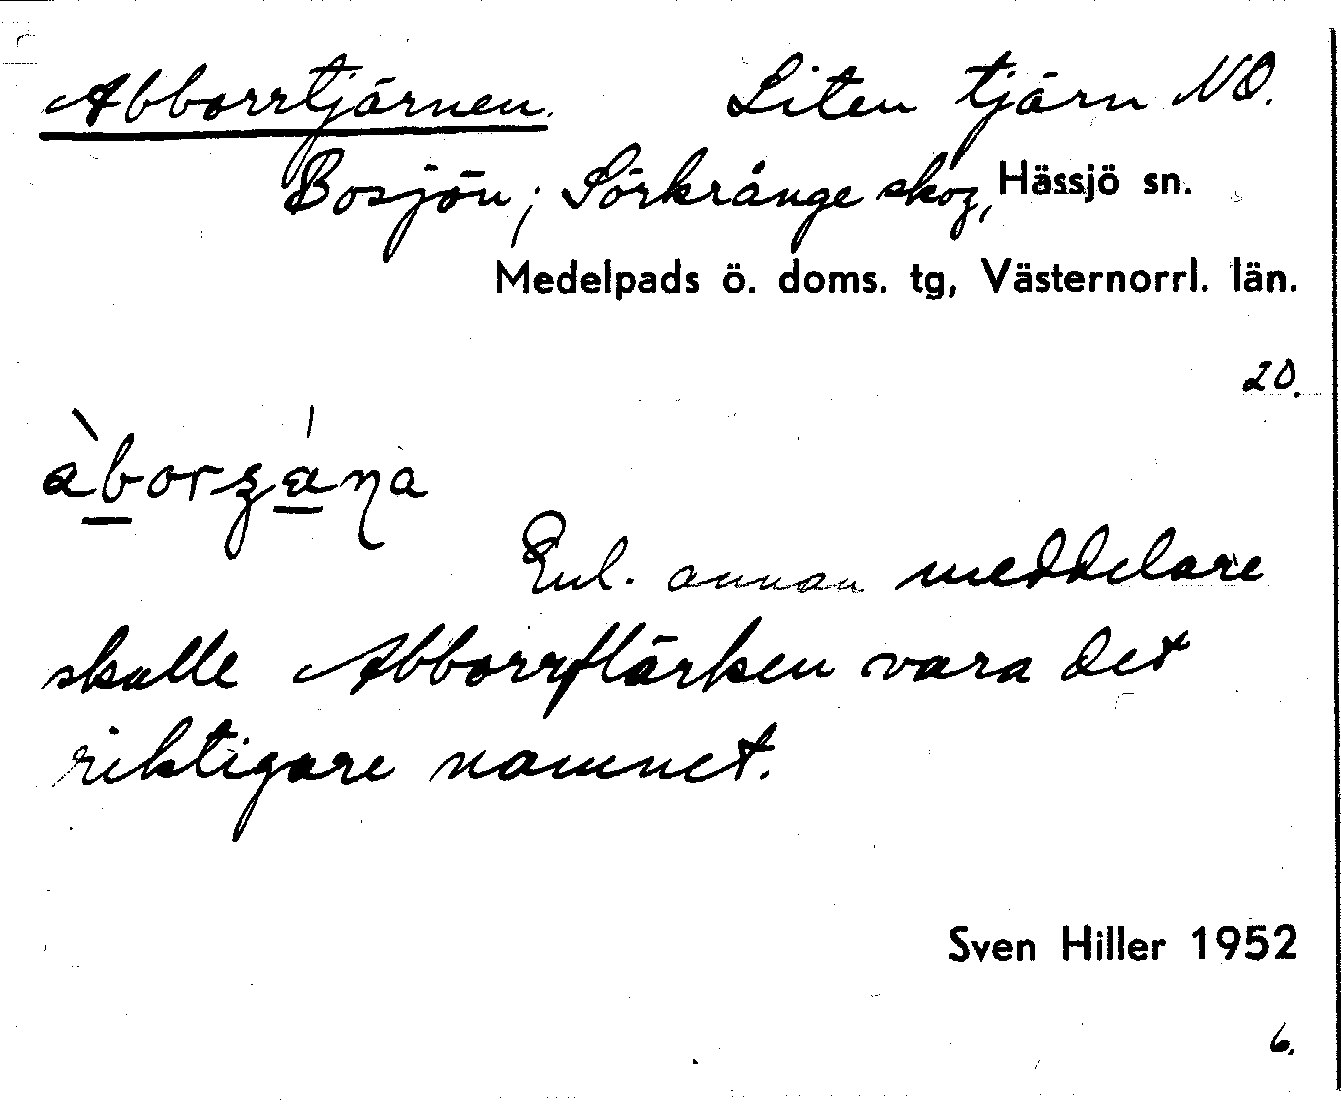 Abborrtjärnen. Liten tjärn NO.
Bosjön; Sörkrånge skog, Hässjö sn.
Medelpads ö. doms. tg, Västernorrl. län.
20.
Enl. annan meddelare
skulle Abborrflärken vara det
riktigare namnet.
Sven Hiller 1952
6.